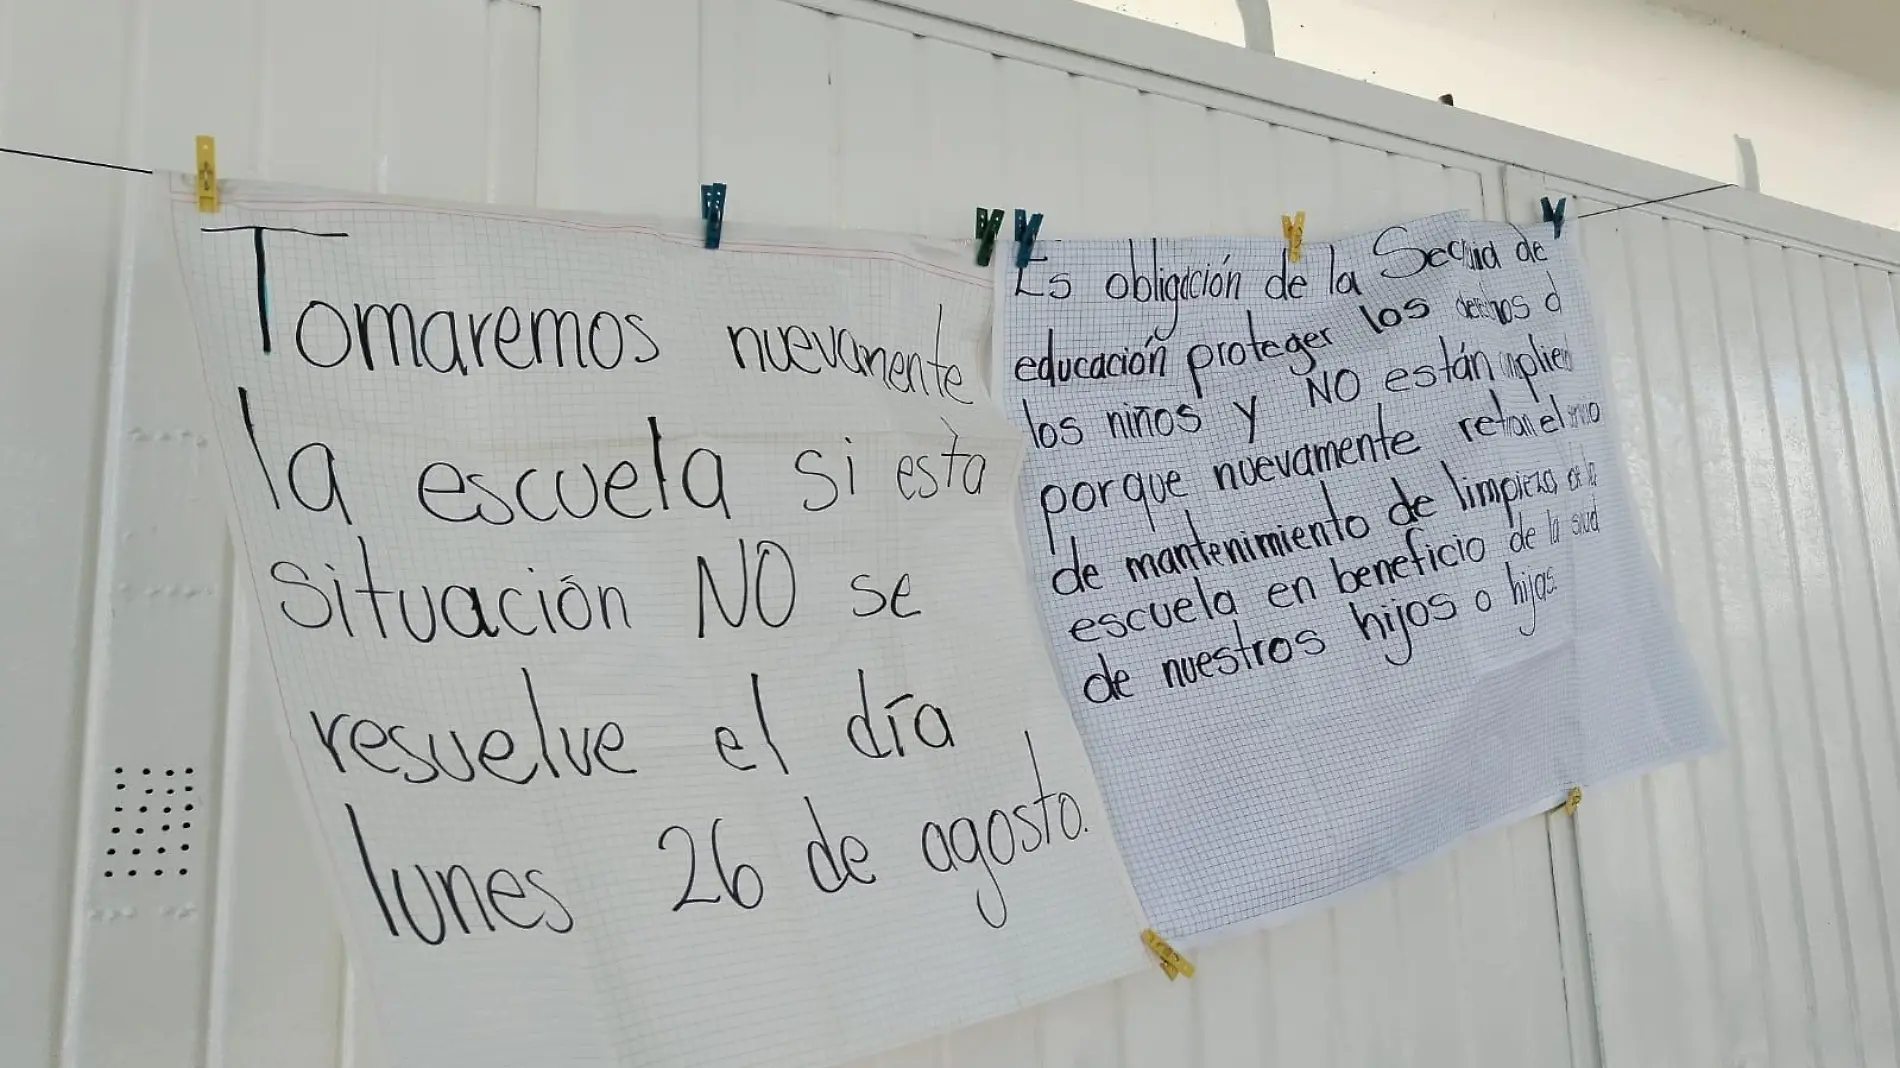 Tomaremos nuevamente
la escuela si esta
situación NO se
resuelve el día
lunes 26 de agosto.
Es obligación de la de
educación proteger los d
los niños y NO están
porque nuevamente el
de mantenimiento de limpieza de la
escuela en beneficio de la salud
de nuestros hijos o hijas.